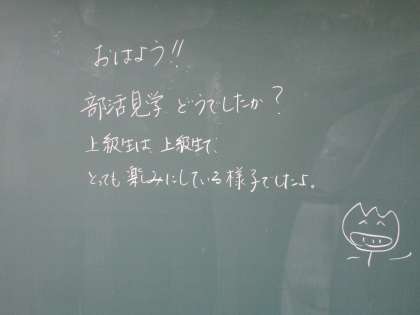 おはよう!!
部活見学 どうでしたか?
上級生は、上級生で、
とっても楽しみにしている様子でしたよ。